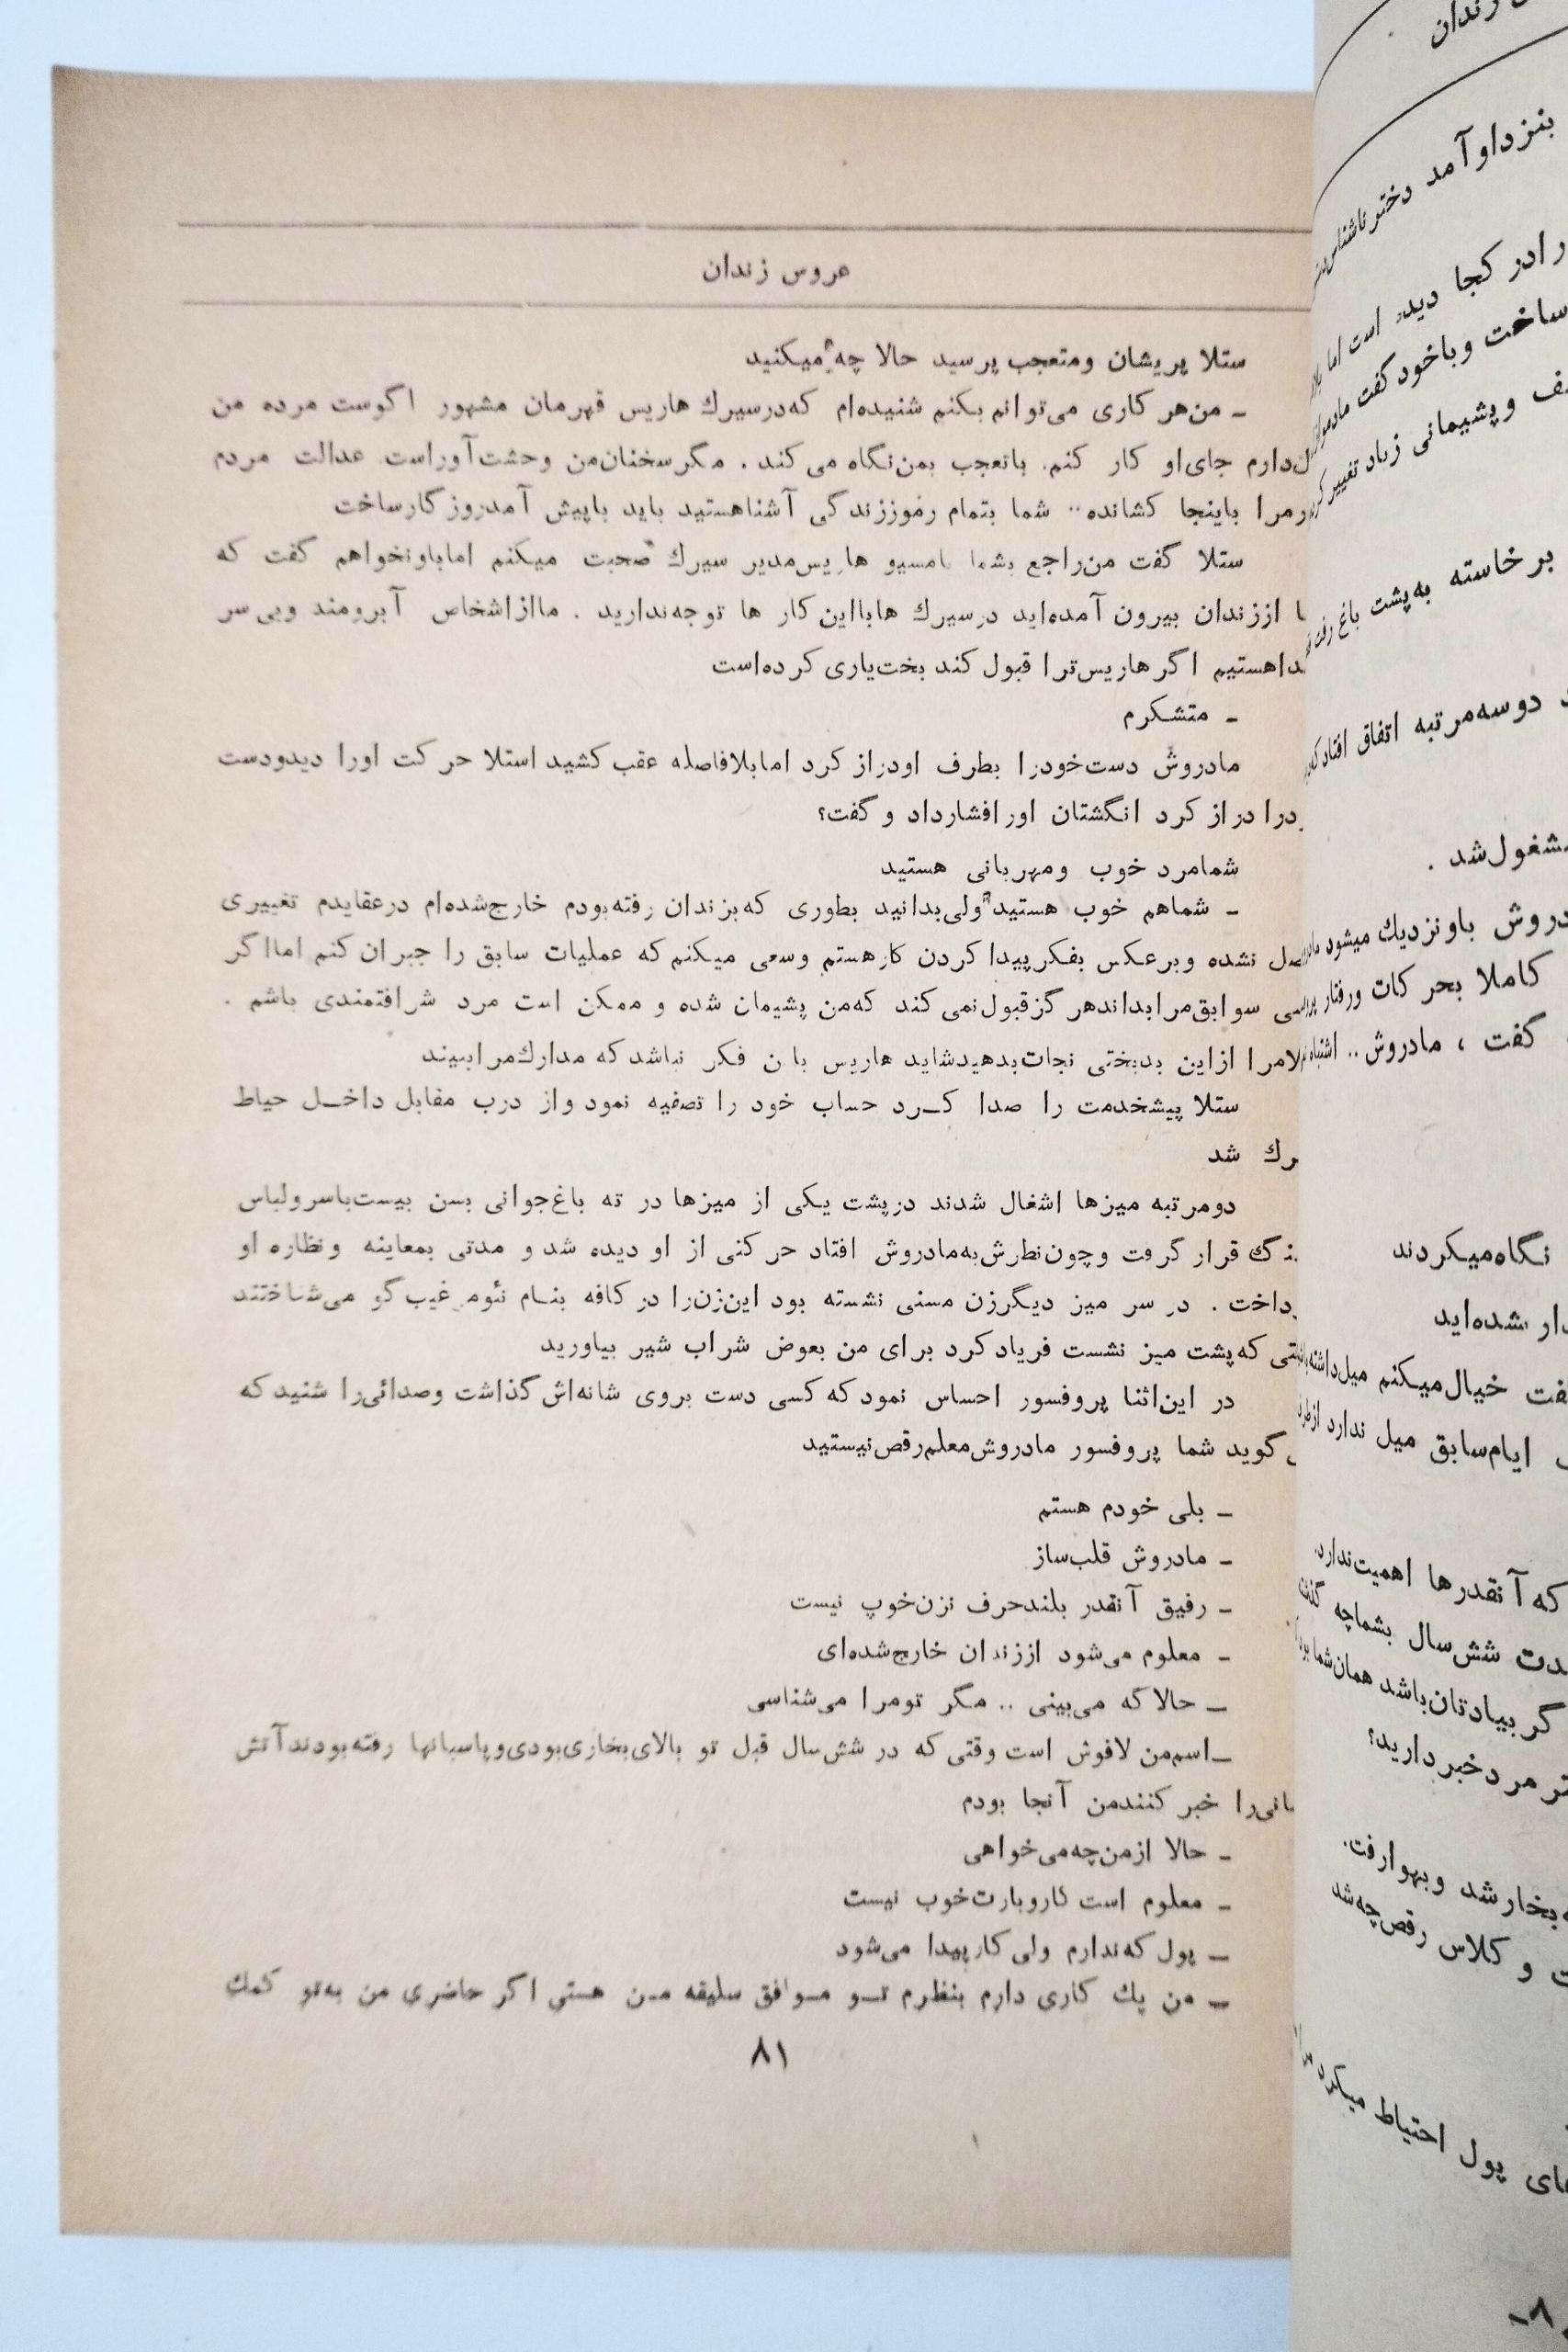 عروس زندان
ستلا پریشان ومتعجب پرسید حالا چه میکنید
ـ من‌هر کاری می‌توانم بکنم شنیده‌ام که‌درسیرك هاریس قهرمان مشهور اگوست مرده من
جای‌او کار کنم. باتعجب بمن‌نگاه می‌کند . مگرسخنان‌من وحشت‌آوراست عدالت مردم
باینجا کشانده .. شما بتمام رموززندگی آشناهستید باید باپیش آمدروزگارساخت
ستلا گفت من‌راجع بشما بامسیو هاریس‌مدیر سیرك صحبت میکنم اماباونخواهم گفت که
اززندان بیرون آمده‌اید درسیرك هابااین کار ها توجه‌ندارید . مااز‌اشخاص آبرومند وبی‌سر
اگرهاریس‌ترا قبول کند بخت‌یاری کرده‌است
ـ متشکرم
مادروش دست‌خودرا بطرف اودراز کرد امابلافاصله عقب کشید استلا حرکت اورا دیدودست
دراز کرد انگشتان اورافشارداد و گفت؟
شمامرد خوب ومهربانی هستید
ـ شماهم خوب هستید ولی‌بدانید بطوری که‌بزندان رفته‌بودم خارج‌شده‌ام درعقایدم تغییری
نشده وبرعکس بفکرپیدا کردن کارهستم وسعی میکنم که عملیات سابق را جبران کنم امااگر
سوابق‌مرابداندهرگزقبول‌نمی‌کند که‌من پشیمان شده و ممکن است مرد شرافتمندی باشم .
ازاین بدبختی نجات‌بدهیدشاید هاریس باین فکر نباشدکه مدارك‌مراببیند
ستلا پیشخدمت را صدا کـرد حساب خود را تصفیه نمود واز درب مقابل داخـل حیاط
شد
دومرتبه میزها اشغال شدند درپشت یکی از میزها در ته باغ‌جوانی بسن بیست‌باسرولباس
قرار گرفت وچون‌نظرش‌به‌مادروش افتاد حرکتی از او دیده شد و مدتی بمعاینه ونظاره او
در سر میز دیگرزن مسنی نشسته بود این‌زن‌را در کافه بنـام نئومی‌غیب‌گو می‌شناختند
که‌پشت میز نشست فریاد کرد برای من بعوض شراب شیر بیاورید
در این‌اثنا پروفسور احساس نمود که کسی دست بروی شانه‌اش گذاشت وصدائی‌را شنید که
گوید شما پروفسور مادروش‌معلم‌رقص‌نیستید
ـ بلی خودم هستم
ـ مادروش قلب‌ساز
ـ رفیق آنقدر بلندحرف نزن‌خوپ نیست
ـ معلوم می‌شود اززندان خارج‌شده‌ای
ـ حالا که می‌بینی .. مگر تومرا می‌شناسی
ـ اسم‌من لافوش است وقتی که در شش‌سال قبل تو بالای‌بخاری‌بودی‌وپاسبانها رفته‌بودندآتش
خبر کنندمن آنجا بودم
ـ حالا ازمن‌چه‌می‌خواهی
ـ معلوم است کاروبارت‌خوب نیست
ـ پول که‌ندارم ولی کارپیدا می‌شود
ـ من یك کاری دارم بنظرم تـو مـوافق سلیقه مـن هستی اگر حاضری من به‌تو کمك
۸۱
زندان
بنزداوآمد دخترناشناس
رادر کجا دیده است اما
ساخت وباخود گفت
وپشیمانی زیاد تغییر
برخاسته به‌پشت باغ
دوسه‌مرتبه اتفاق افتاد
مشغول‌شد .
باونزدیك میشود
کاملا بحرکات ورفتار
گفت ، مادروش .. اشتباه
نگاه‌میکردند
شده‌اید
خیال‌میکنم میل‌داشته
ایام‌سابق میل ندارد
که آنقدرها اهمیت‌ندارد
شش‌سال بشماچه
گربیادتان‌باشد همان‌شما
خبردارید؟
بخارشد وبهوارفت.
و کلاس رقص‌چه‌شد
پول احتیاط میکرد